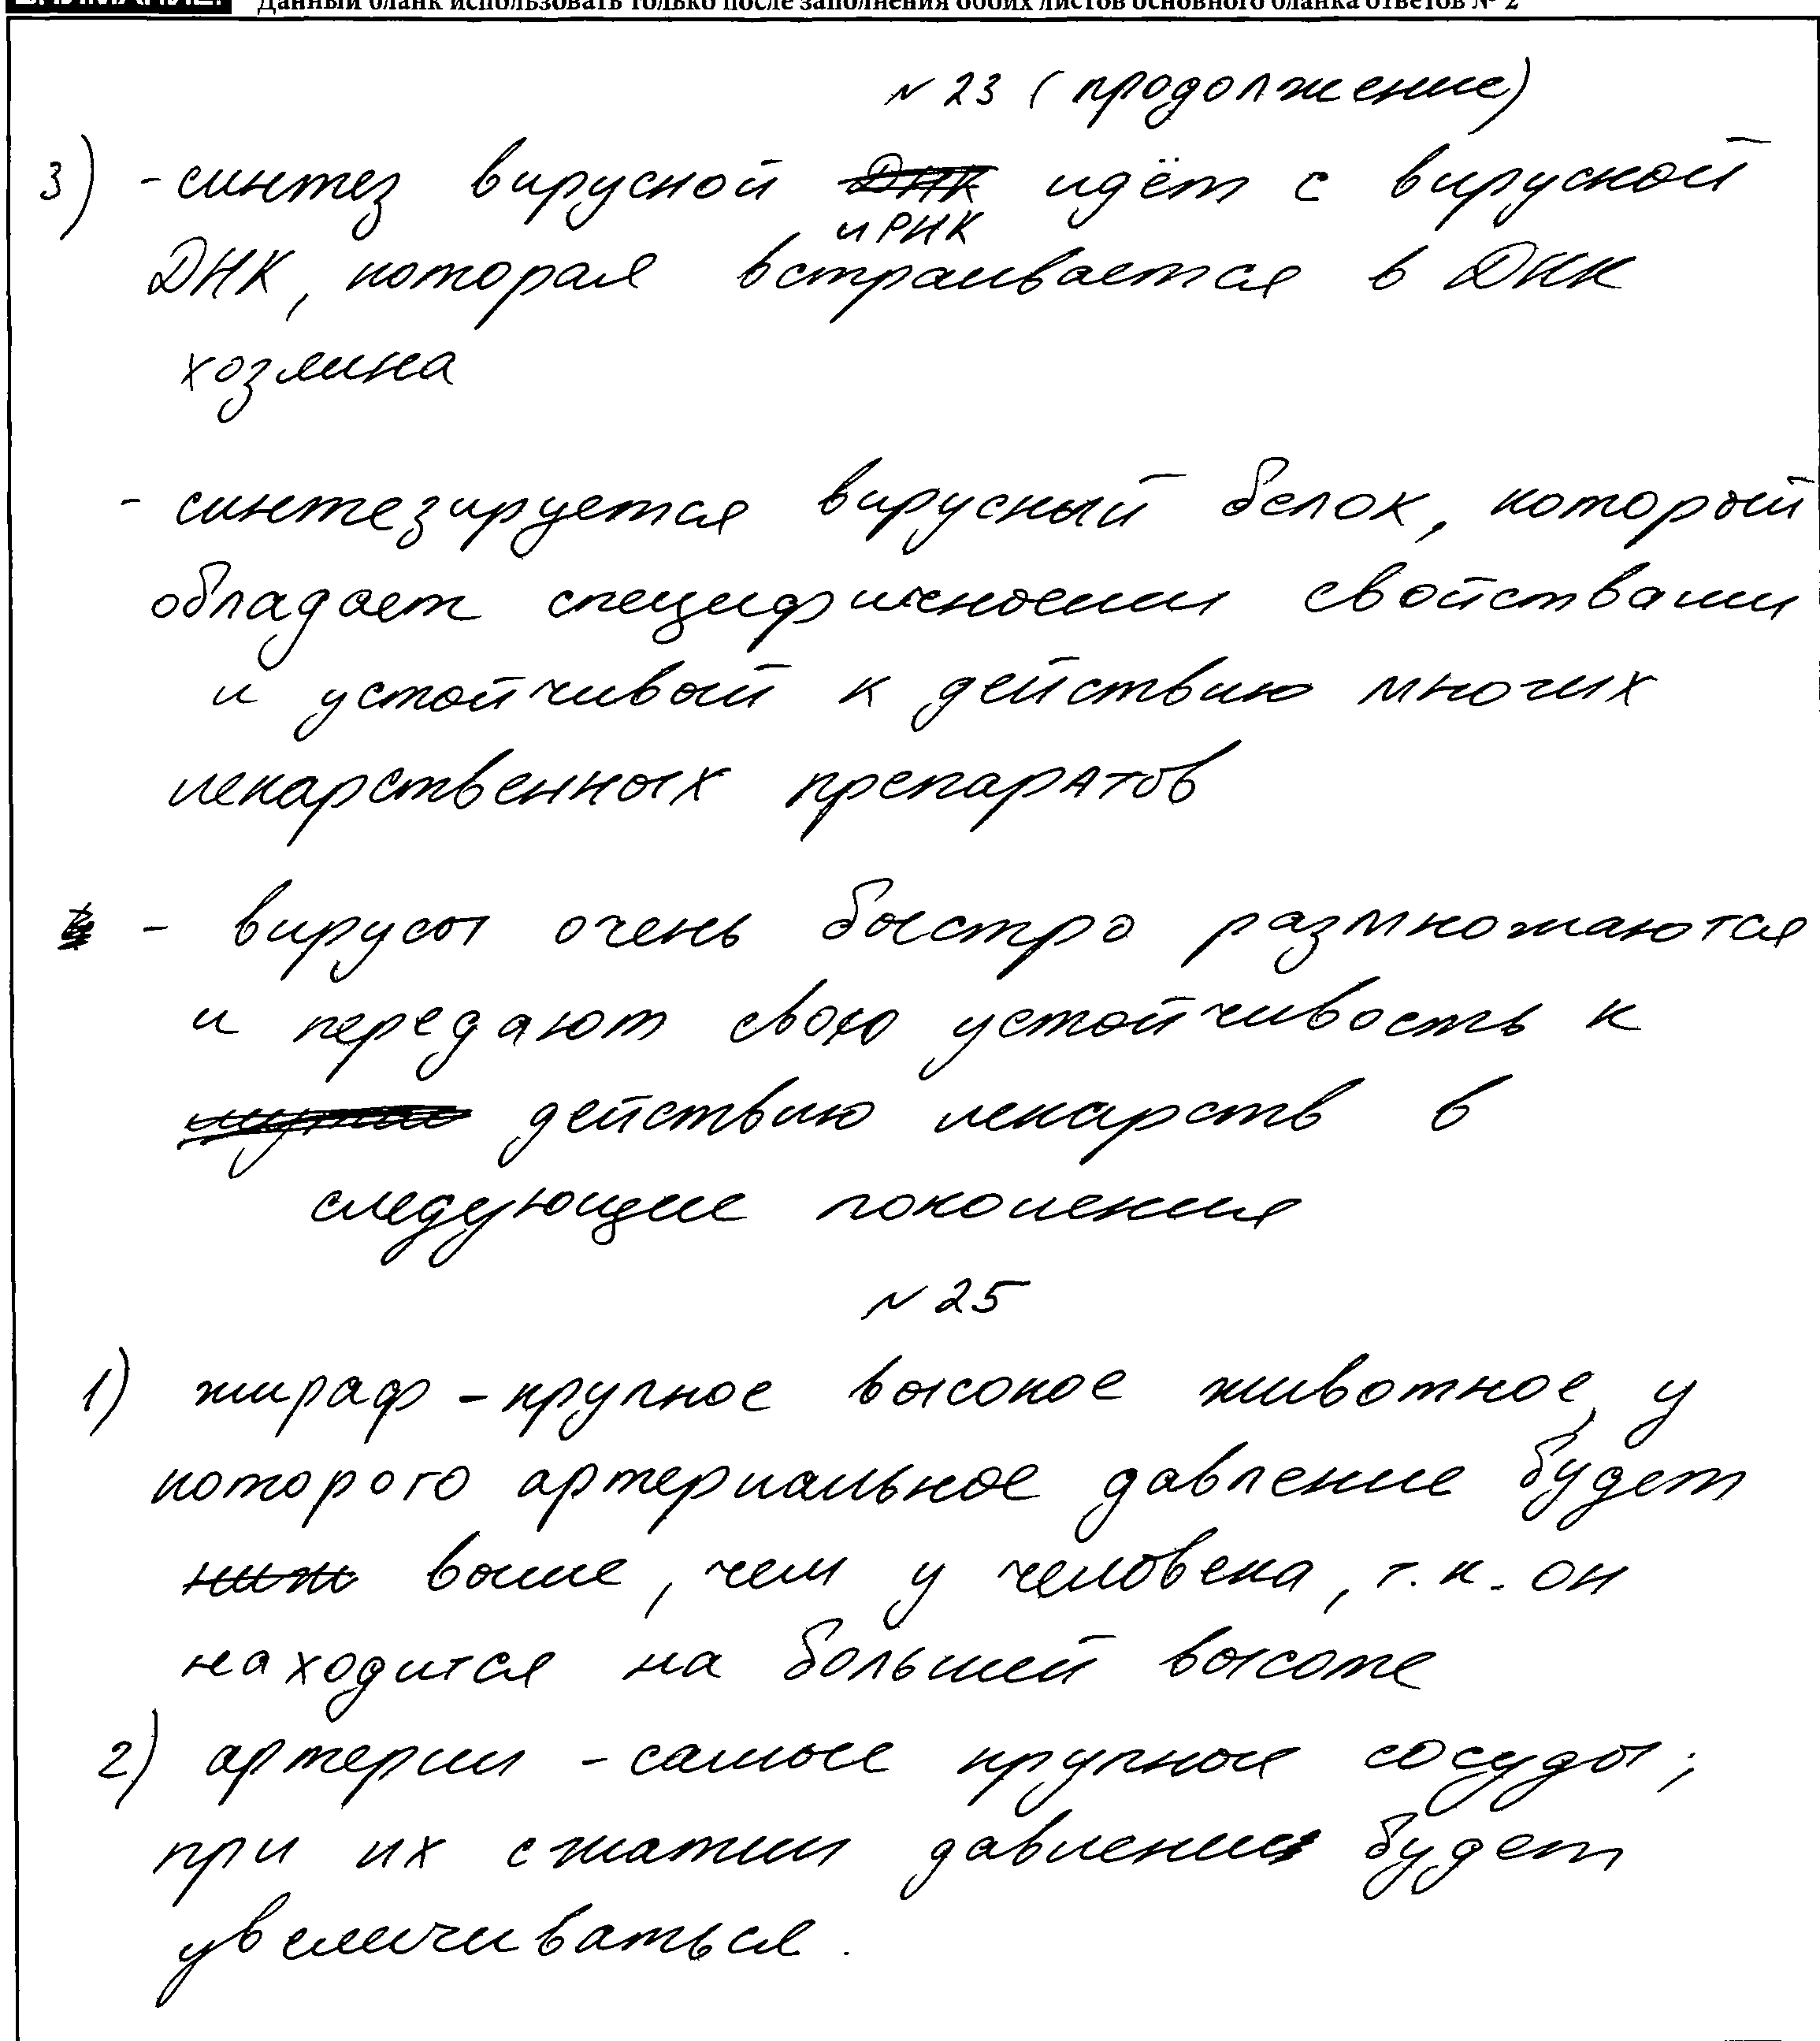 ВНИМАНИЕ! Данный бланк использовать только после заполнения обоих листов основного бланка ответов № 2
№ 23 (продолжение)
3) - синтез вирусной ДНК идёт с вирусной
иРНК
ДНК, которая встраивается в ДНК
хозяина
- синтезируется вирусный белок, который
обладает специфичными свойствами
и устойчивый к действию многих
лекарственных препаратов
- вирусы очень быстро размножаются
и передают свою устойчивость к
действию лекарств в
следующие поколения
№ 25
1) жираф - крупное высокое животное, у
которого артериальное давление будет
ниж выше, чем у человека, т.к. он
находится на большей высоте
2) артерии - самые крупные сосуды;
при их сжатии давление будет
увеличиваться.